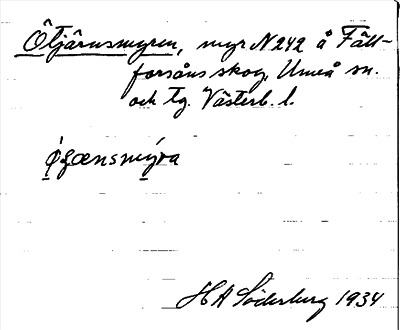 Ötjärnsmyren, myr N 242 å Fäll-
forsåns skog, Umeå sn.
och tg. Västerb. l.
ǿʒænsmýra
H A Söderberg 1934